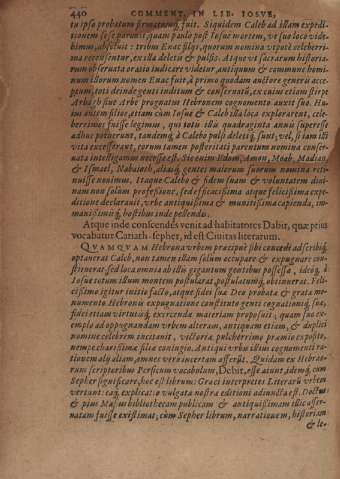 440 COMMENT. IN LIB. IOSVE,
tu ipso probatum firmatumq́; fuit. Siquidem Caleb ad illam expedi-
tionem sese parauit, quam paulo post Iosue mortem, vt suo loco vide-
bimus, absoluit: tribum Enac silijs, quorum nomina vtpote celeberri-
ma recensentur, ex illa deletis & pulsis. Atque vt sacrarum historia-
rum obseruata oratio indicare videtur, antiquum & commune homi-
num illorum nomen Enac fuit, à primo quodam auctore generis acce-
ptum, toti deinde genti inditum & conseruatũ, ex cuius etiam stirpe
Arbagh siue Arbe prognatus Hebronem cognomento auxit suo. Hu-
ius autem filios, etiam cùm Iosue & Caleb illa loca explorarent, cele-
berrimos fuisse legimus, qui toto illis quadraginta annis superesse
adhuc potuerunt, tandemq́; à Calebo pulsi deletiq́; sunt; vel, si iam illi
vita excesserant, eorum tamen posteritati parentum nomina conser-
uata intelligamus necesse est. Sic enim Edom, Amon, Moab, Madian,
& Ismael, Nabaioth, aliasq́; gentes maiorum suorum nomina reti-
nuisse nouimus. Itaque Calebo & fidem suam & voluntatem diui-
nam non solùm professione, sed efficacissima atque felicissima expe-
ditione declarauit, vrbe antiquissima & munitissima capienda, im-
manissimisq́; hostibus inde pellendis.
Atque inde conscendẽs venit ad habitatores Dabir, quæ prius
vocabatur Cariath-sepher, id est Ciuitas literarum.
QVAMQVAM Hebrona vrbem præcipuè sibi concedi adscribiq́;
optauerat Caleb, non tamen illam solùm occupare & expugnare con-
stituerat sed loca omnia ab illis gigantum gentibus possessa, ideoq́; à
Iosue totum illum montem postularat, postulatumq́; obtinuerat. Feli-
cissimo igitur initio facto, atque fidei suæ Deo probata & grata mo-
numento Hebronis expugnatione constituto genti cognationiq́; suæ,
fidei etiam virtutisq́; exercendæ materiam proposuit, quam suo ex-
emplo ad oppugnandam vrbem alteram, antiquam etiam, & duplici
nomine celebrem incitauit, victoriæ pulcherrimo præmio exposito,
nempe charissimæ filiæ coniugio. Antiqui vrbis illius cognomenti ra-
tionem alij aliam, omnes vero incertam afferũt. Quidam ex Hebræo-
rum scriptoribus Persicum vocabulum, Debir, esse aiunt, idemq́; cum
Sepher significare, hoc est librum: Græci interpretes Literarũ vrbem
verterunt: eaq́; explicatio vulgata nostra editioni adiuncta est. Doctus
& pius Masius bibliothecam publicam & antiquissimam illic asser-
natam fuisse existimat; cùm Sepher librum, narrationem, historiam
& le-